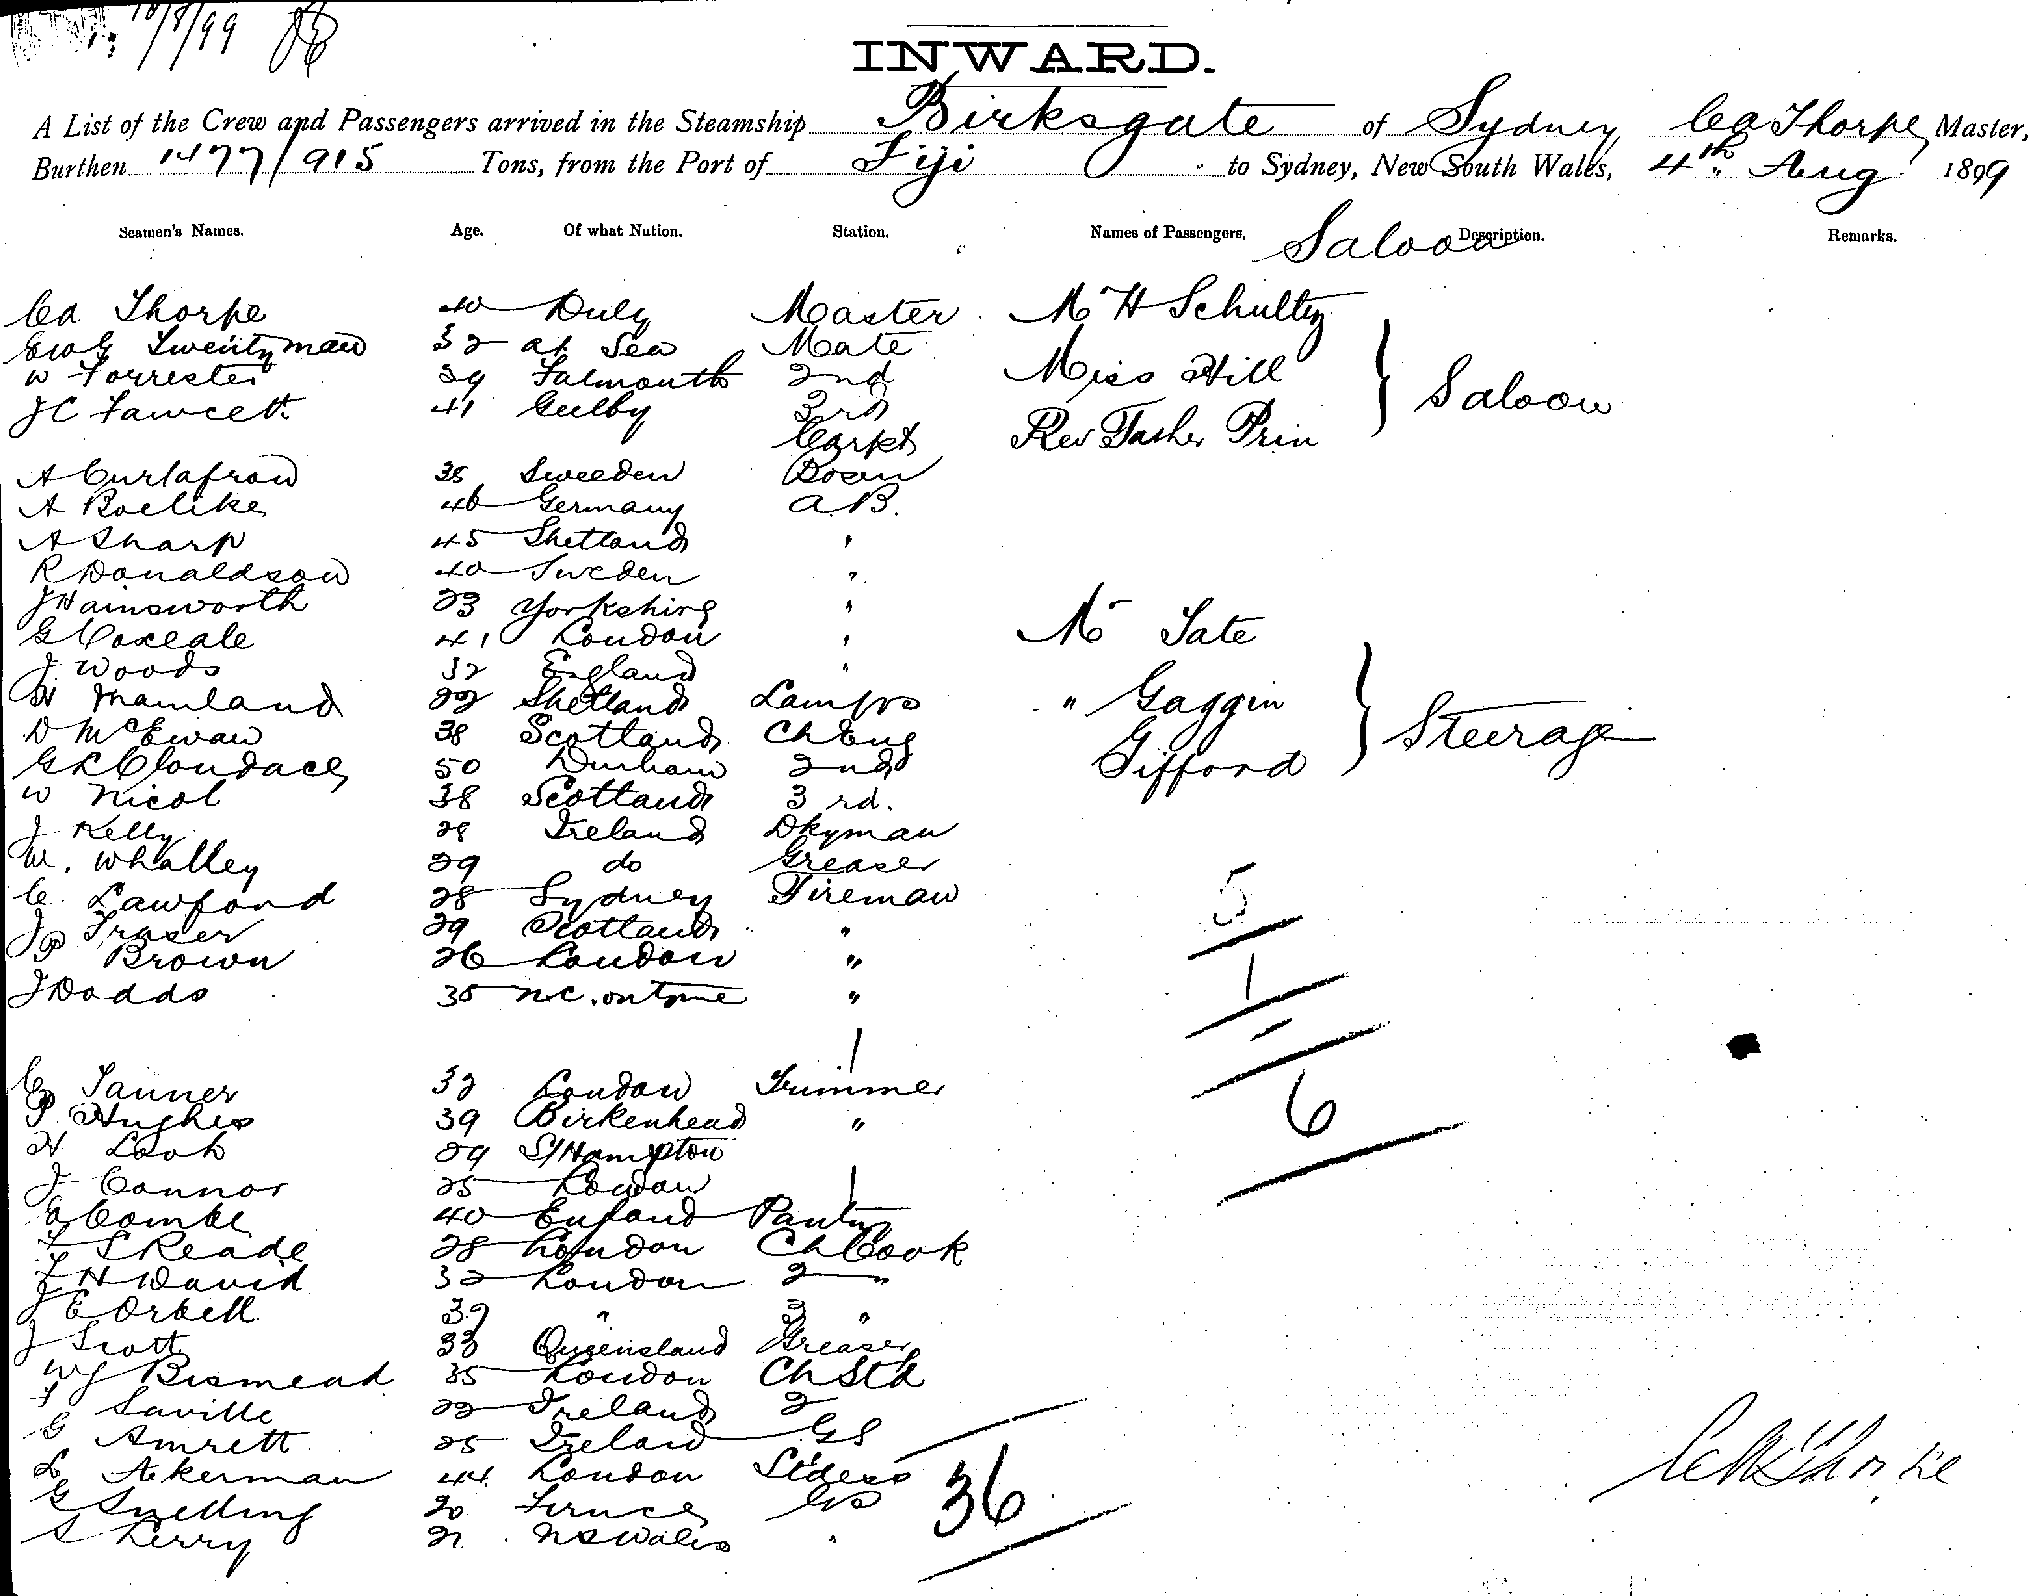 10/8/99
INWARD.
A List of the Crew and Passengers arrived in the Steamship Birksgate of Sydney Ca Thorpe Master,
Burthen 1477/915 Tons, from the Port of Fiji to Sydney, New South Wales, 4th Aug 1899
Seamen's Names. Age. Of what Nation. Station. Names of Passengers, Description. Remarks.
Saloon
Ca Thorpe 40 Master Mr H Schultz
Twentyman 32 at Sea Mate
W Forrester 39 Falmouth 2nd Miss Hill
Saloon
J C Fawcett 41 3rd
Carpt Rev Father Prin
A 38 Sweeden Bosen
A Boelike 46 Germany A.B.
A Sharp 45 Shetland "
R Donaldson 40 Sweden "
J Hainsworth 23 Yorkshire " Mr Tate
G Coxeale 41 London "
J. Woods 32 England "
H Mainland 22 Shetland Lamps " Gaggin
D McEwan 38 Scotland Ch Eng Steerage
50 Durham 2nd Gifford
W Nicol 38 Scotland 3rd.
J Kelly 28 Ireland Dkyman
M. Whalley 29 do Greaser
C. Lawford 28 Sydney Fireman 5
J Fraser 29 Scotland "
Brown 26 London " 1
J Dodds 35 "
C Tanner 32 London Trimmer 6
P. Hughes 39 Birkenhead "
H Cook 29 S/Hampton
J Connor 25 London
Combe 40 England Pantry
F S Reade 28 London Ch Cook
F H David 32 London 2 "
J E Orbell 39 " 3 "
J Scott 33 Queensland Greaser
W J Bismead 35 London Ch Std
F Saville 22 Ireland 2
G Amrett 25 Ireland GS
L Akerman 44 London Stdess
G Snelling 20 36
S Perry 21 N S Wales "
C A Thorpe